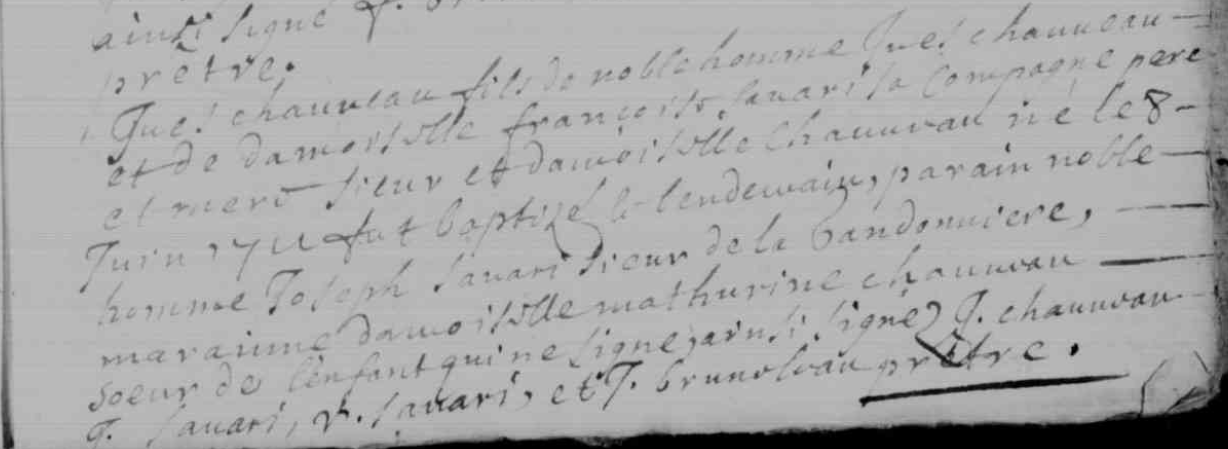 ainsi signé J.
prêtre.
Jues chauveau fils de noble homme Jues chauveau
et de damoiselle françoise savari sa compagne pere
et mere sieur et damoiselle chauveau né le 8
Juin 1711 fut baptizé le lendemain, parain noble
homme Joseph savari sieur de la bandonniere,
maraine damoiselle mathurine chauveau
soeur de l'enfant qui ne signe, ainsi signé J. chauveau
J. savari, r. savari, et J. bruneleau prêtre.